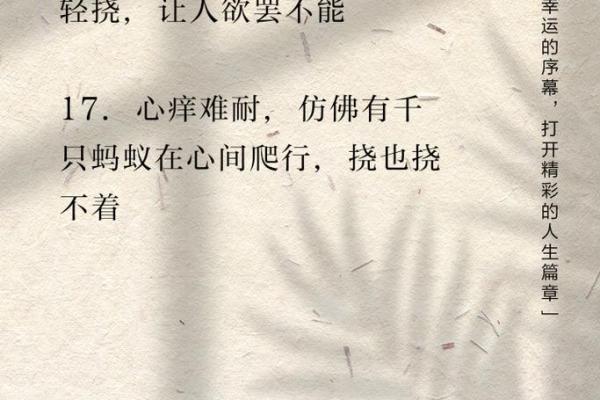 轻挠，让人欲罢不能
17. 心痒难耐，仿佛有千
只蚂蚁在心间爬行，挠也挠
不着
幸运的序幕，打开精彩的人生篇章」